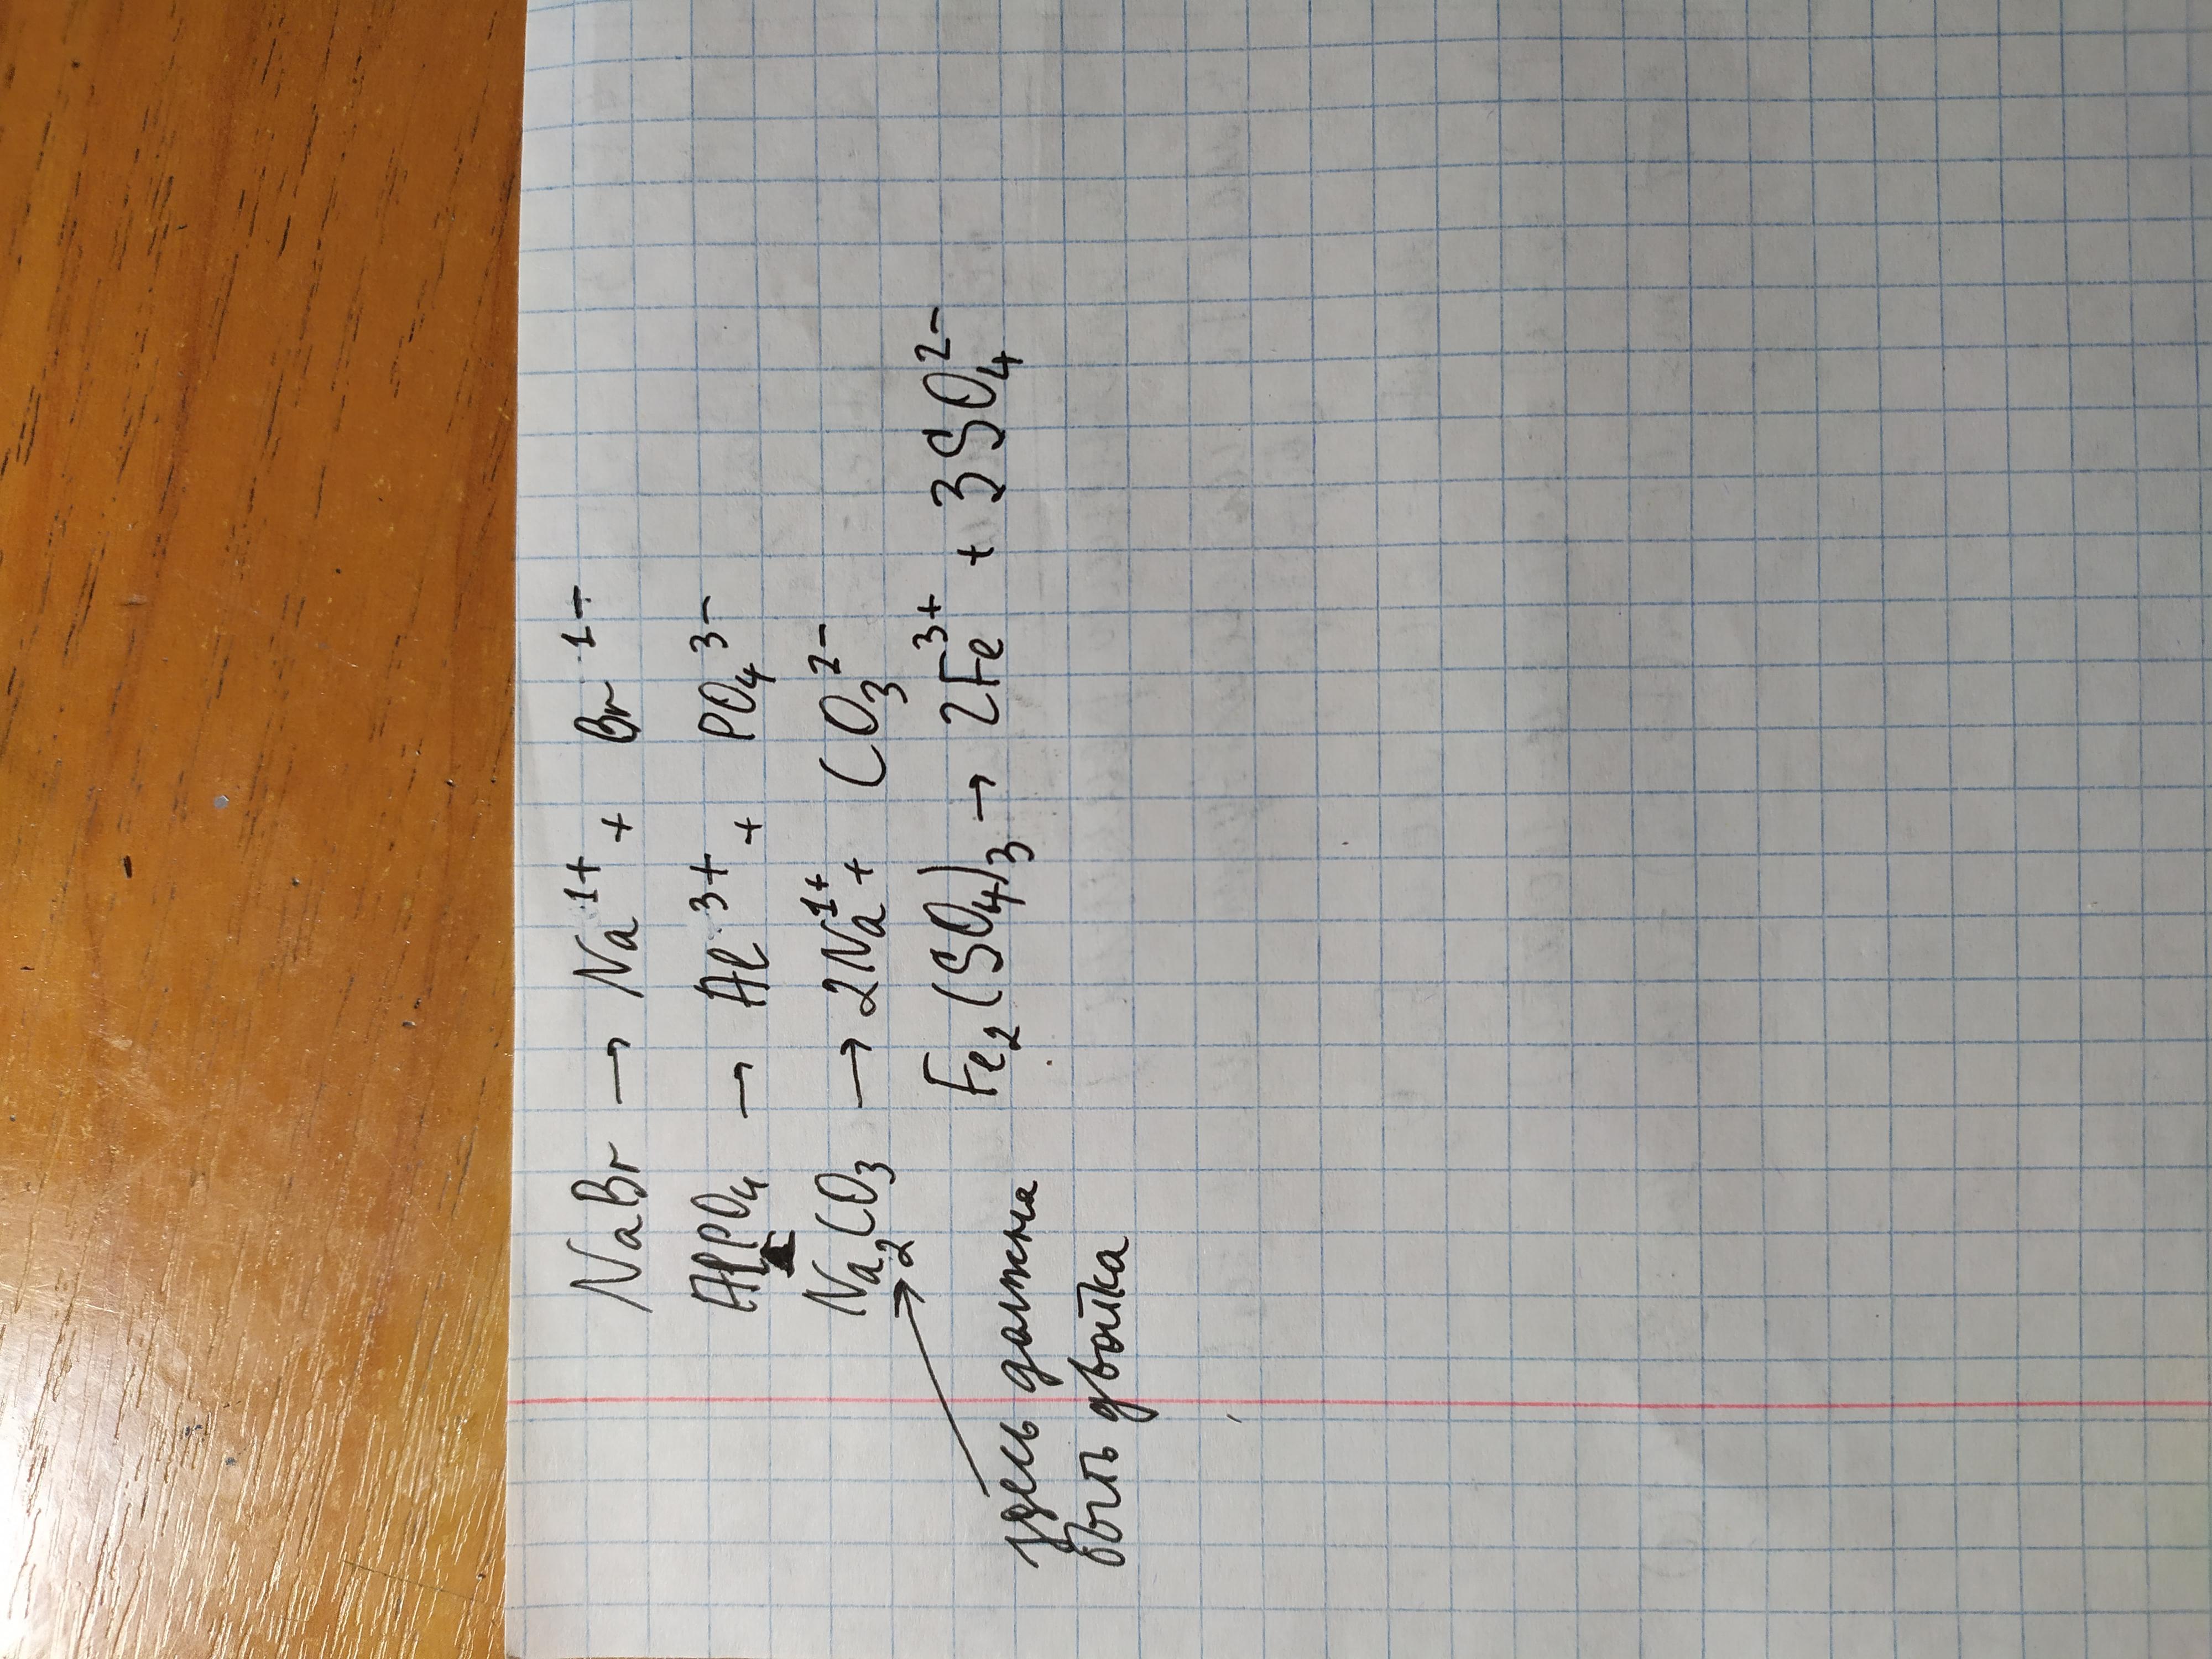 NaBr → Na¹⁺ + Br¹⁻
AlPO₄ → Al³⁺ + PO₄³⁻
Na₂CO₃ → 2Na¹⁺ + CO₃²⁻
Fe₂(SO₄)₃ → 2Fe³⁺ + 3SO₄²⁻
здесь должна
быть двойка